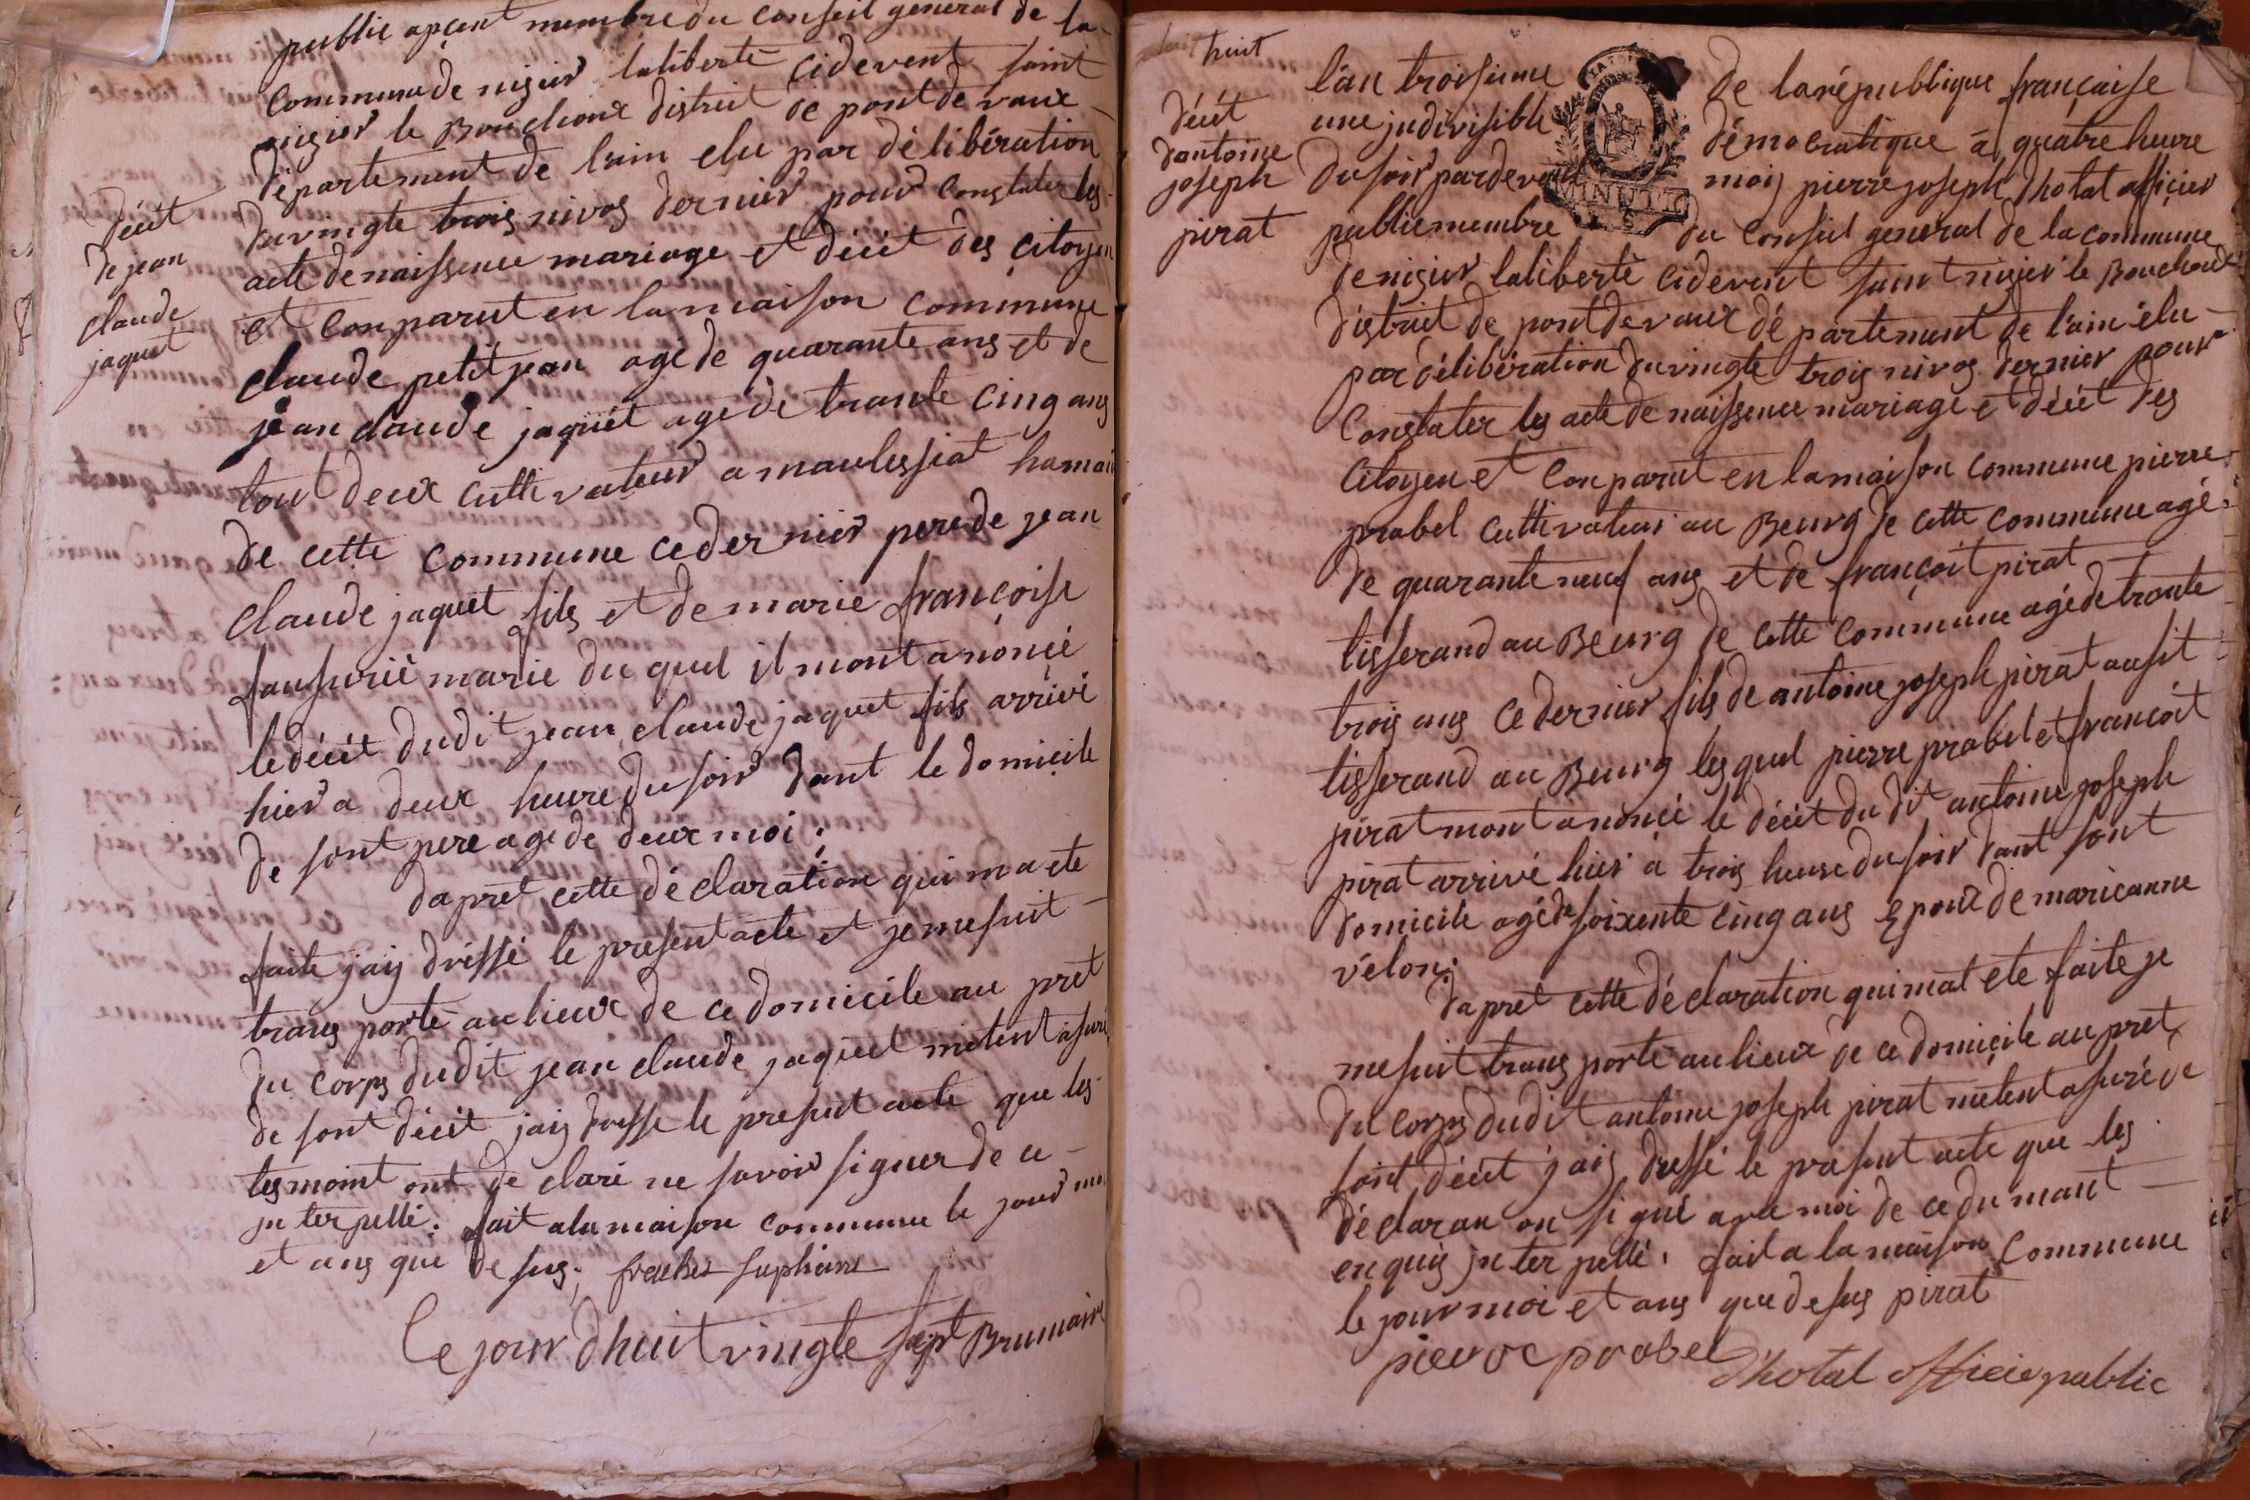 public apcent membre du conseil general de la
commune de nizier laliberté cidevent saint
nizier le Bouchoux district de pont de vaux
département de lain elu par délibération
duvingte trois nivos dernier pour constater les
acte denaissence mariage et décit des citoyen
et conparut en la maison commune
claude petit jean agé de quarante ans et de
jean claude jaquet agé de trante cinq ans
tout deux cultivateur a maulissiat hamau
de cette commune cedernier pere de jean
claude jaquet fils et de marie françoise
marié du quel il mont anoncé
le décit dudit jean claude jaquet fils arrivé
hier a deux heure du soir dant le domicile
de sont pere agé de deux moi ;
dapret cette déclaration qui ma ete
faite jaij dréssé le present acte et je me suit
trans porté au lieux de ce domicile au pret
du corps dudit jean claude jaquet metent asuré
de sont décit jaij dressé le present acte que les
tesmoint ont declaré ne savoir signer de ce
jnterpellé. fait a la maison commune le jour moi
et ans que desus ;
Ce jour dhuit vingte sept Brumaire
décit
de jean
claude
jaquet
huit
décit
dantoine
joseph
pirat
l'an troisieme de la république française
une jndivisible démocratique a quatre heure
du soir pardevent moij pierre joseph Dhotat officier
public membre du conseil general de la commune
de nizier laliberté cidevent saint nizier le Bouchoux
district de pont de vaux département de l'ain élu
par délibération duvingte trois nivos dernier pour
constater les acte de naissence mariage et décit des
citoyen et conparut en la maison commune pierre
prabel cultivateur au Beurg de cette commune agé
de quarante neuf ans et de françoit pirat
tisserand au Beurg de cette commune agé de trante
trois ans ce dernier fils de antoine joseph pirat ausit
tisserand au Beurg lesquel pierre prabel et françoit
pirat mont anoncé le décit du dit antoine joseph
pirat arrivé hier a trois heure du soir dant sont
domicile agé de soixente cinq ans Epoux de marieanne
vélon ;
dapret cette déclaration qui mat ete faite je
me suit trans porté au lieux de ce domicile au pret
du corps dudit antoine joseph pirat metent asuré de
sont décit jaij dressé le present acte que les
déclaran on signé avec moi de ce dumant
enquis jnterpellé. fait a la maison commune
le jour moi et ans que desus pirat
pierre prabel
Dhotat officie public
MINUTE